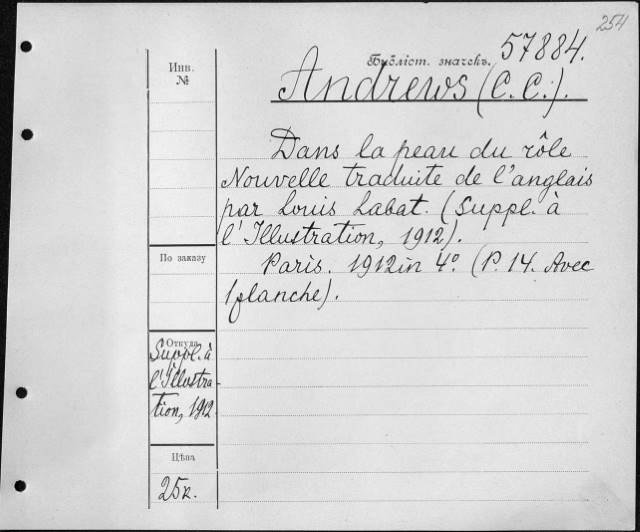 254
57884.
Библіот. значекъ.
Andrews (C. C.).
Инв.
№
Dans la peau du rôle
Nouvelle traduite de l'anglais
par Louis Labat. (Suppl. à
l'Illustration, 1912).
Paris. 1912 in 4º. (P. 14. Avec
1 planche).
По заказу
Откуда
Suppl. à
l'Illustra-
tion, 1912
Цѣна
25к.